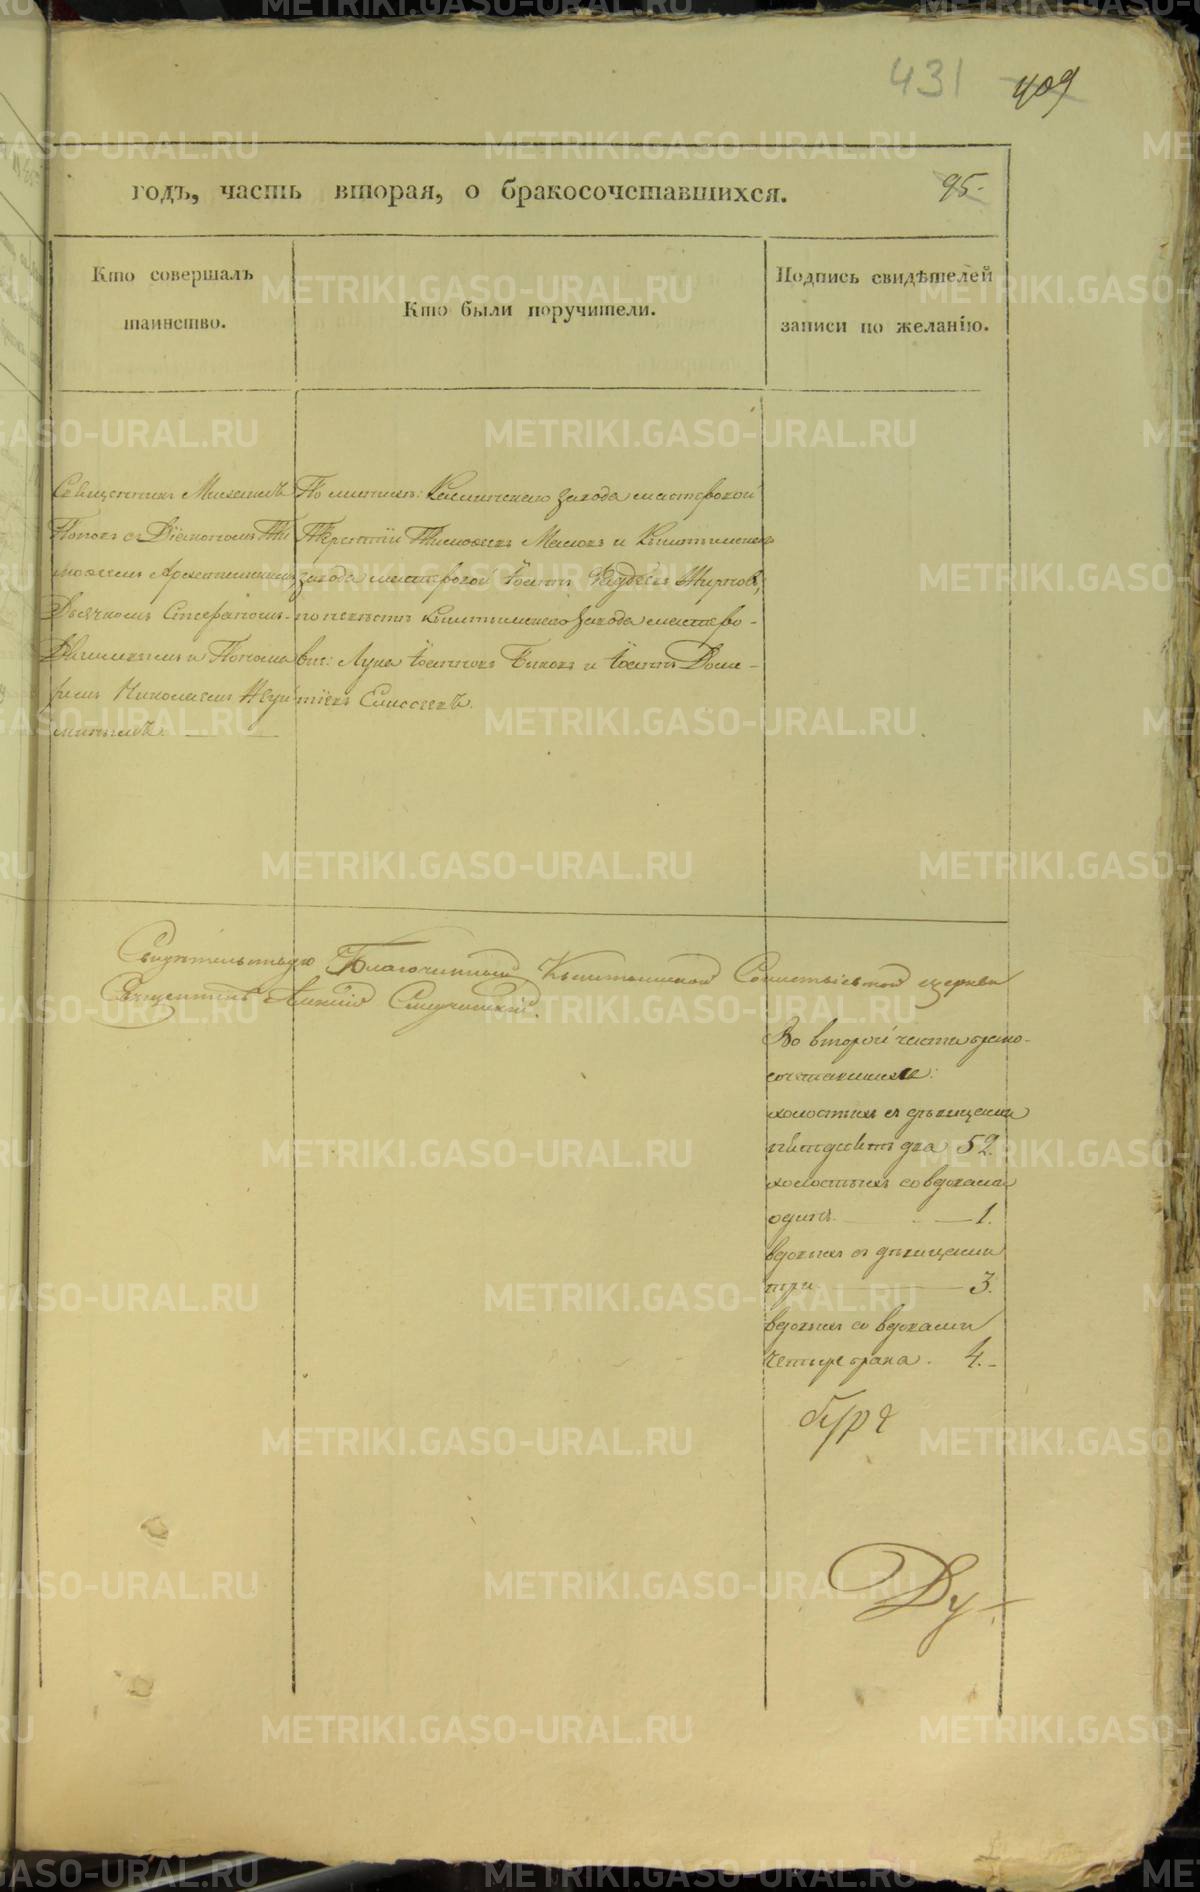 431 409
годъ, часть вторая, о бракосочетавшихся. 95.
Кто совершалъ
таинство.
Кто были поручители.
Подпись свидѣтелей
записи по желанію.
Священникъ Михаилъ
Поповъ съ Діакономъ Ти
моѳеемъ
Дьячкомъ Стефаномъ
и Понома
ремъ Николаемъ
По женихѣ: Каслинскаго завода мастеровой
Терентій Тимоѳеевъ Масловъ и Кыштымскаго
завода мастеровой Іоаннъ Жирновъ,
по невѣстѣ Кыштымскаго завода мастеро-
вые: Лука Іоанновъ Быковъ и Іоаннъ Доме-
тіевъ Елисеевъ.
Свидѣтельствую Благочинный Кыштымской Сошествіевской церкви
Священникъ
Во второй части брако-
сочетавшихся:
холостыхъ съ дѣвицами
пятдесятъ два 52.
холостыхъ со вдовами
одинъ. 1.
вдовыхъ съ дѣвицами
три 3.
вдовыхъ со вдовами
четыре брака. 4.
METRIKI.GASO-URAL.RU